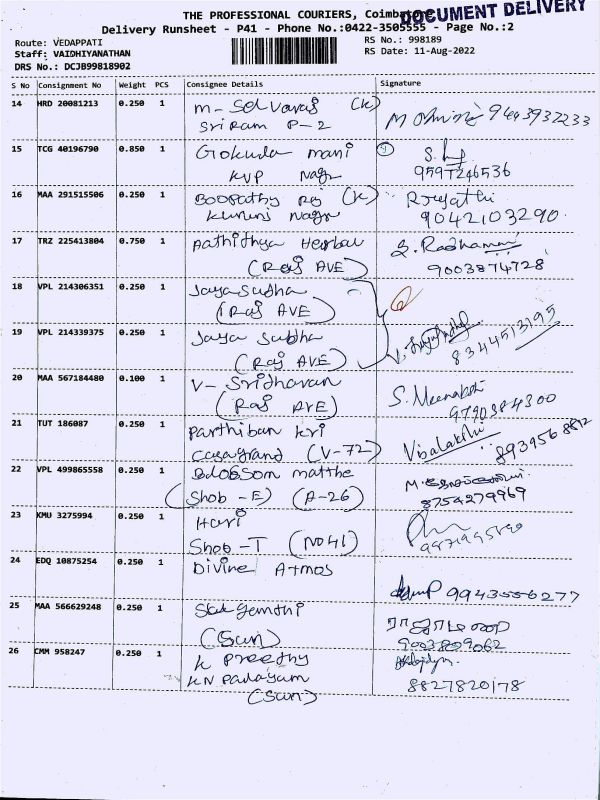 THE PROFESSIONAL COURIERS, Coimbatore
DOCUMENT DELIVERY
Delivery Runsheet - P41 - Phone No.:0422-3505555 - Page No.:2
Route: VEDAPPATI RS No.: 998189
Staff: VAIDHIYANATHAN RS Date: 11-Aug-2022
DRS No.: DCJB99818902
S No Consignment No Weight PCS Consignee Details Signature
14 HRD 20081213 0.250 1 M- Selvaraj (K)
Sriram P-2 9443937233
15 TCG 40196790 0.850 1 Gokula mani
KVP Nagr 9597246536
16 MAA 291515506 0.250 1 Boopathy Rj (K)
Kurunji Nagr 9042103290
17 TRZ 225413804 0.750 1 Aathithya Herbal S. Radhamani
(Raj AVE) 9003874728
18 VPL 214306351 0.250 1 Jaya Sudha
(Raj AVE)
19 VPL 214339375 0.250 1 Jaya Subha
(Raj AVE) 8344513195
20 MAA 567184480 0.100 1 V- Sridharan S. Meenakshi
(Raj AVE) 9790384300
21 TUT 186087 0.250 1 Parthiban Kri Visalakshi
Casagrand (V-72) 8939568812
22 VPL 499865558 0.250 1 Blossom matthe
(Shob -E) (A-26) 8754279969
23 KMU 3275994 0.250 1 Hari
Shob -T (NO41)
24 EDQ 10875254 0.250 1 Divine Atmos
9943556277
25 MAA 566629248 0.250 1
(Sun) 9003809062
26 CMM 958247 0.250 1 K Preethy
KN Palayam 8827820178
(Sun)